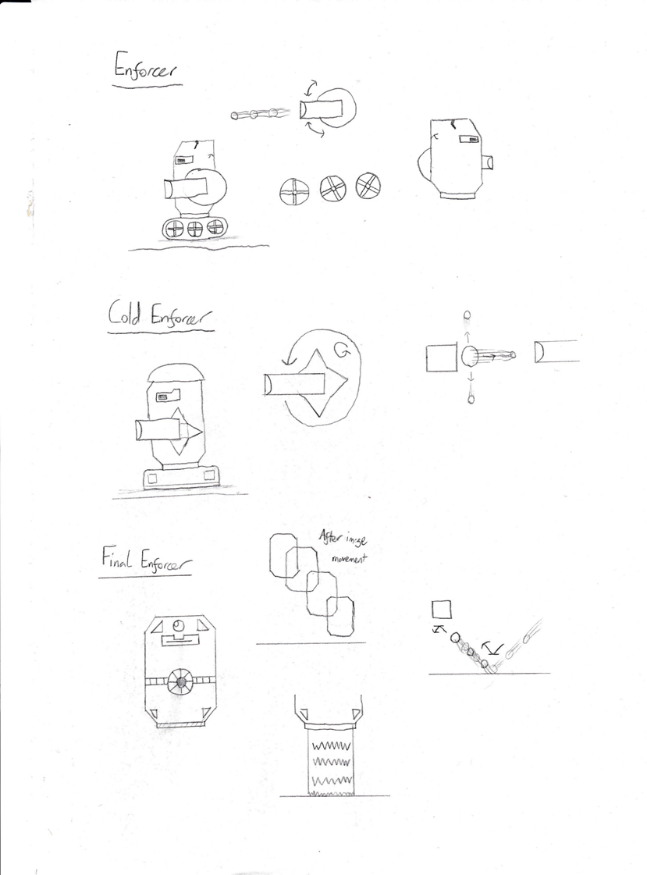 Enforcer
Cold Enforcer
Final Enforcer
After image
movement